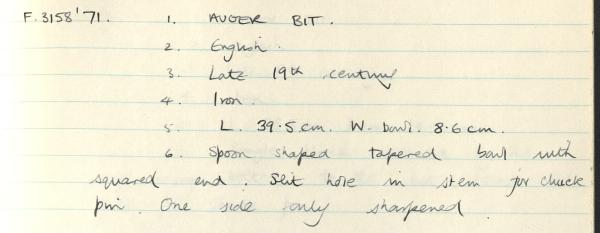 F.3158'71. 1. AUGER BIT.
2. English.
3. Late 19th century
4. Iron.
5. L. 39.5cm. W. bowl. 8.6cm.
6. Spoon shaped tapered bowl with
squared end. Slit hole in stem for chuck
pin. One side only sharpened